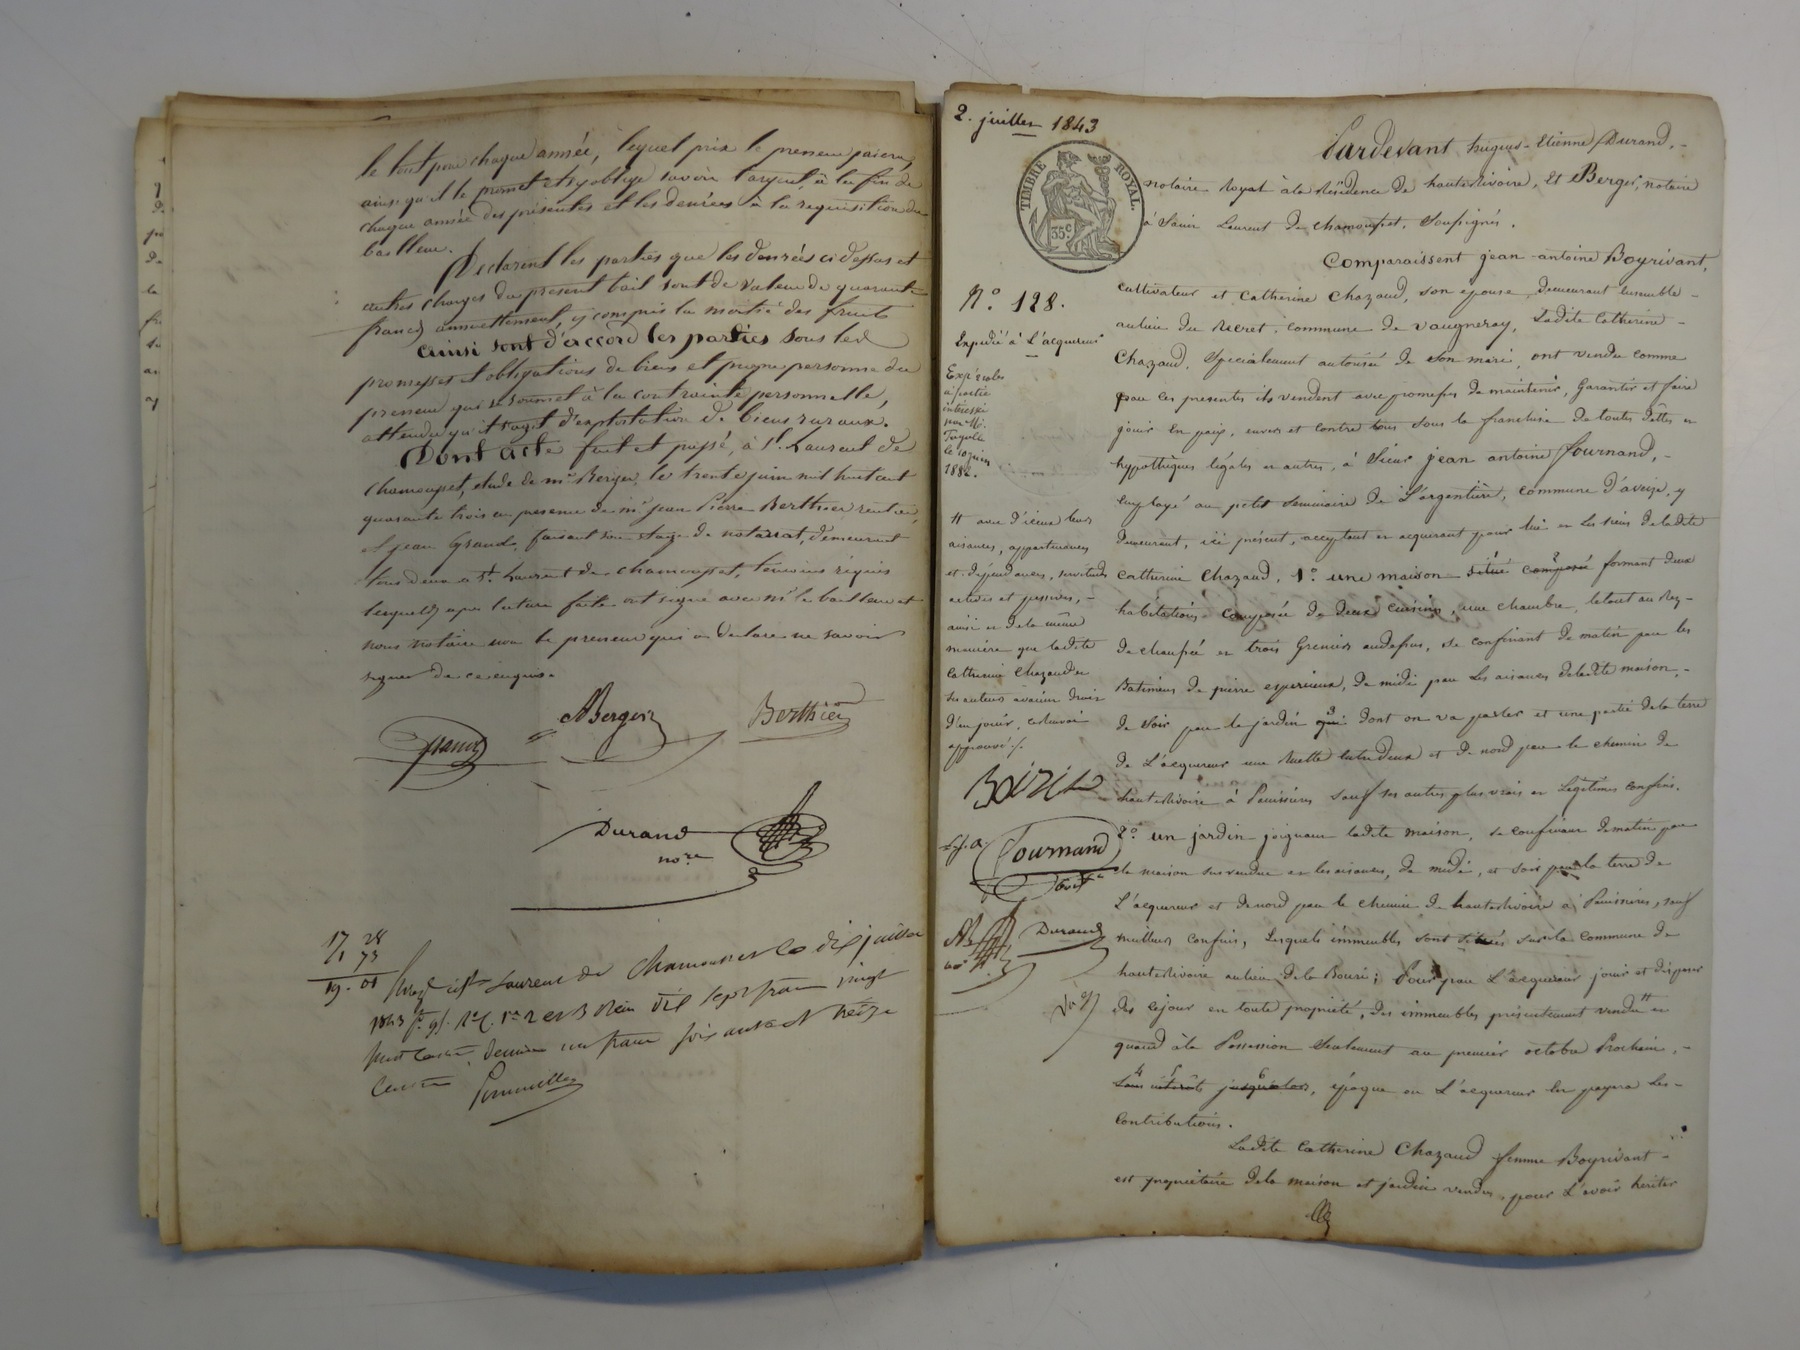 le tout pour chaque année, lequel prix le preneur paiera,
ainsi qu'il le promet et s'y oblige savoir l'argent, à la fin de
chaque année des présentes et les denrées à la requisition du
bailleur.
Déclarent les parties que les denrées ci dessus et
autres charges du present bail sont de valeur de quarante
francs annuellement, y compris la moitié des fruits
Ainsi sont d'accord les parties sous les
promesses et obligations de biens et propre personne du
preneur qui se soumet à la contrainte personnelle,
attendu qu'il s'agit d'exploitation de biens ruraux.
Dont acte fait et passé, à St Laurent de
Chamousset, etude de me Berger, le trente juin mil huit cent
quarante trois en presence de mr jean Pierre Berthier rentier,
et jean Grand, faisant son stage de notariat, demeurant
tous deux a St Laurent de Chamousset, temoins requis
lesquels apres lecture faite ont signé avec mr le bailleur et
nous notaire non le preneur qui a declaré ne savoir
signer de ce enquis.
ABerger
Berthier
Grand
Durand
nore
17 28
1 73
19. 01
St Laurent de Chamousset le dix juillet
1843 dix sept francs vingt
huit cent. Decime un franc soixante et treize
Centimes
2. juillet 1843
TIMBRE ROYAL.
35c
Pardevant hugues-Etienne Durand,
notaire royal à la Résidence de hauterivoire, et Berger, notaire
à Saint Laurent de chamousset. Soussignés.
Comparaissent jean-antoine Boyrivant,
cultivateur et Catherine Chazaud, son epouse, demeurant ensemble
au lieu du Recret, commune de Vaugneray, Ladite Catherine
Chazaud, Specialement autorisée de son mari, ont vendu comme
par ces presentes ils vendent avec promesses de maintenir, garantir et faire
jouir en paix, envers et contre tous sous la franchise de toutes dettes et
hypothèques légales et autres, à Sieur jean antoine fournand,
employé au petit Seminaire de L'argentière, commune d'aveize, y
demeurant, ici présent, acceptant et acquerant pour lui et les siens de ladite
Catherine Chazaud, 1o une maison situé composé formant deux
habitations composée de deux cuisines, une chambre, le tout au Rez-
de chaussée et trois Greniers audessus, se confinant de matin par les
Batimens de pierre esperieux, de midi par Les aisances deladite maison,
de Soir par le jardin qui dont on va parler et une partie de la terre
de L'acquereur une Ruelle entre Deux et de nord par le chemin de
hauterivoire à Panissières sauf ses autres plus vrais et Légitimes confins.
2o un jardin joignant ladite maison, se confinant de matin par
la maison sus vendue et les aisances, de midi, et soir par la terre de
L'acquereur et de nord par le chemin de hauterivoire à Panissières, sauf
meilleurs confins, Lesquels immeubles sont situés sur la Commune de
hauterivoire au lieu de la Bourie; Pour par L'acquereur jouir et disposer
dès cejour en toute propriété, des immeubles présentement vendus et
quand à la Possession Seulement au premier octobre Prochain,
Sans interêts jusqu'alors, époque ou L'acquereur en payera Les
contributions.
Ladite Catherine Chazaud femme Boyrivant
est propriétaire dela maison et jardin vendus, pour L'avoir hériter
No 128.
Expédié à L'acquereur
à partie
le 10 juin
1882.
avec d'iceux leurs
aisances, appartenances
et dépendances, servitudes
actives et passives,
ainsi et de la même
manière que ladite
Catherine Chazaud et
ses auteurs avaient droit
d'en jouir, cerenvoi
approuvé
Fournand
Durand